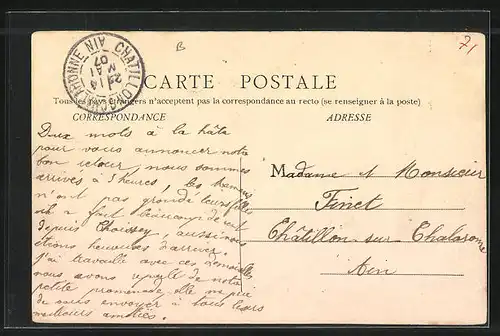 B
71
CHATILLON-S-CHALARONNE AIN
14
MAI
07
CARTE POSTALE
Tous les pays étrangers n'acceptent pas la correspondance au recto (se renseigner à la poste)
CORRESPONDANCE
ADRESSE
Deux mots à la hâte
pour vous annoncer notre
bon retour, nous sommes
arrivés à 5 heures, les
n'ont pas grande
a fait beaucoup de
depuis aussi nous
étions heureuses d'arriver.
j'ai travaillé avec ces demoiselles
nous avons reparlé de notre
petite promenade, elle me prie
de vous envoyer à tous leurs
meilleurs amitiés.
Madame et Monsieur
Finet
Châtillon-sur-Chalaronne
Ain